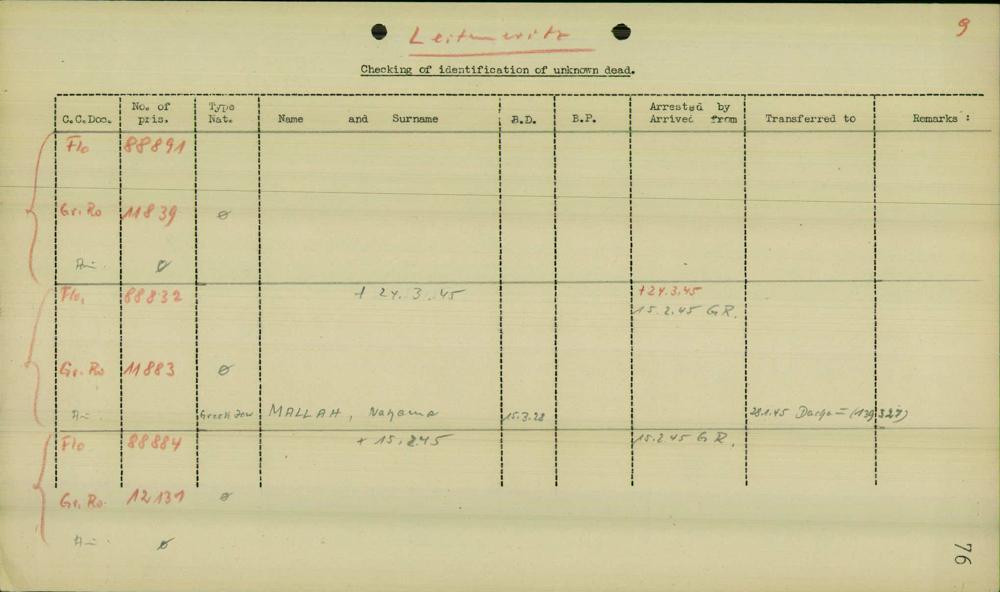 Leitmeritz
9
Checking of identification of unknown dead.
C.C.Doc. No. of pris. Type Nat. Name and Surname B.D. B.P. Arrested by Arrived from Transferred to Remarks :
Flo 88891
Gr. Ro 11839 ø
ø
Flo, 88832 + 24.3.45 +24.3.45
15.2.45 GR.
Gr. Ro 11883 ø
Greek Jew MALLAH, Nahama 15.3.28 28.1.45 (139327)
Flo 88884 + 15.2.45 15.2.45 GR.
Gr. Ro. 12131 ø
ø
76